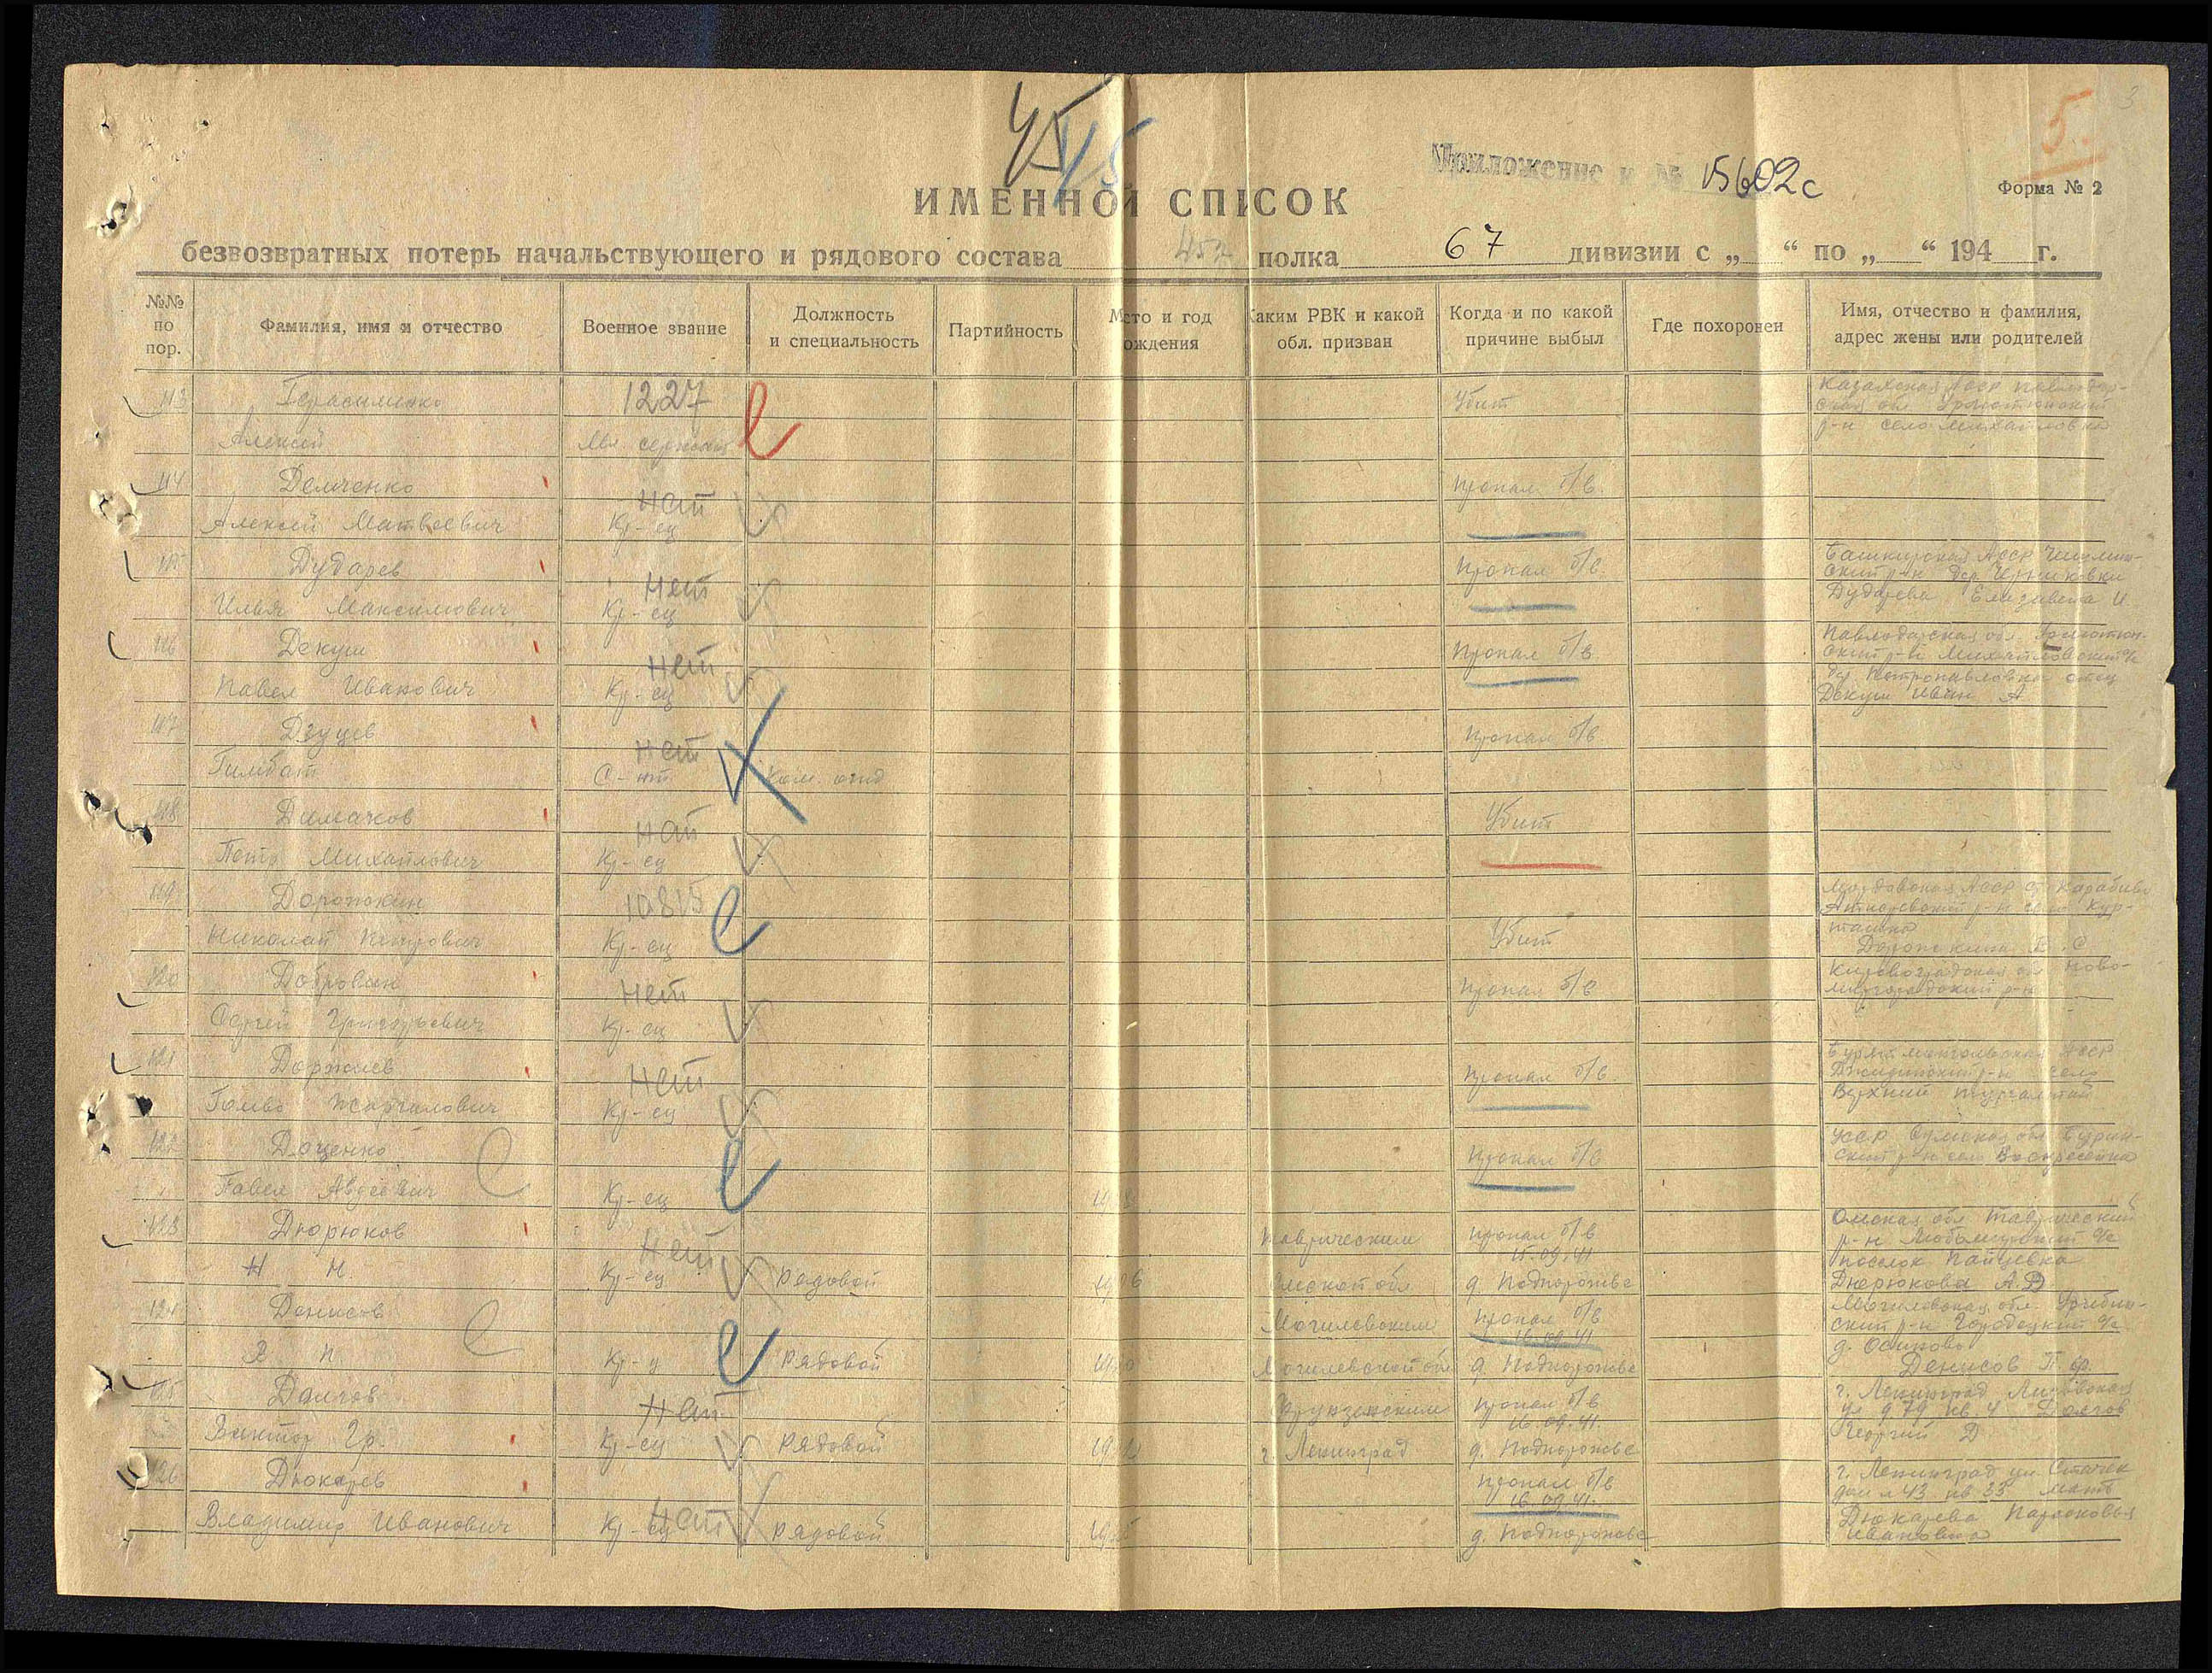 45
45
5.
3
Приложение к № 15602с
Форма № 2
ИМЕННОЙ СПИСОК
безвозвратных потерь начальствующего и рядового состава 452 полка 67 дивизии с „ “ по „ “ 194 г.
№№ по пор.
Фамилия, имя и отчество
Военное звание
Должность и специальность
Партийность
Место и год рождения
Каким РВК и какой обл. призван
Когда и по какой причине выбыл
Где похоронен
Имя, отчество и фамилия, адрес жены или родителей
113 Герасименко 1227 Убит Казахская АССР Павлодар-
ская обл Урлютюпский
Алексей Мл. сержант р-н село Михайловка
114 Демченко Нет Пропал б/в
Алексей Матвеевич Кр-ец
115 Дударев Нет Пропал б/в Башкирская АССР
ский р-н дер
Илья Максимович Кр-ец Дударева Елизавета И
116 Декуш Нет Пропал б/в Павлодарская обл. Урлютюп-
ский р-н Михайловский с/с
Павел Иванович Кр-ец дер Петропавловка отец
Декуш Иван А
117 Дзуцев Нет Пропал б/в
Гилибат С-нт Ком. отд
118 Димаков Нет Убит
Петр Михайлович Кр-ец
119 Дорожкин 10815 Мордовская АССР
Атюрьевский р-н село Кур-
Николай Петрович Кр-ец Убит ташки
Дорожкина Е. С
120 Добровин Нет Пропал б/в Кировоградская обл Ново-
миргородский р-н
Сергей Григорьевич Кр-ец
121 Доржиев Нет Пропал б/в Бурят монгольская АССР
Джидинский р-н село
Гомбо Жаргалович Кр-ец Верхний Торгалтай
122 Доценко Пропал б/в УССР Сумская обл Бурин-
ский р-н село Воскресенка
Павел Авдеевич Кр-ец
123 Дюрюков Нет Таврическим Пропал б/в Омская обл Таврический
15.09.41 р-н с/с
Н Н. Кр-ец Рядовой 1906 Омской обл д. Подпорожье поселок
Дюрюкова А. Д
124 Денисов Могилевским Пропал б/в Могилевская обл.
16.09.41 ский р-н Городецкий с/с
Я П. Кр-ц Рядовой Могилевской обл д. Подпорожье д. Осиновы
Денисов П. Ф.
125 Долгов Нет Фрунзенским Пропал б/в г. Ленинград Лиговская
16.09.41. ул д 79 кв. 4 Долгов
Виктор Гр. Кр-ец Рядовой г. Ленинград д. Подпорожье Георгий Д
126 Дюкарев Нет Пропал б/в г. Ленинград ул. Стачек
16.09.41. дом № 43 кв 33 мать
Владимир Иванович Кр-ец Рядовой д. Подпорожье Дюкарева Парасковья
Ивановна